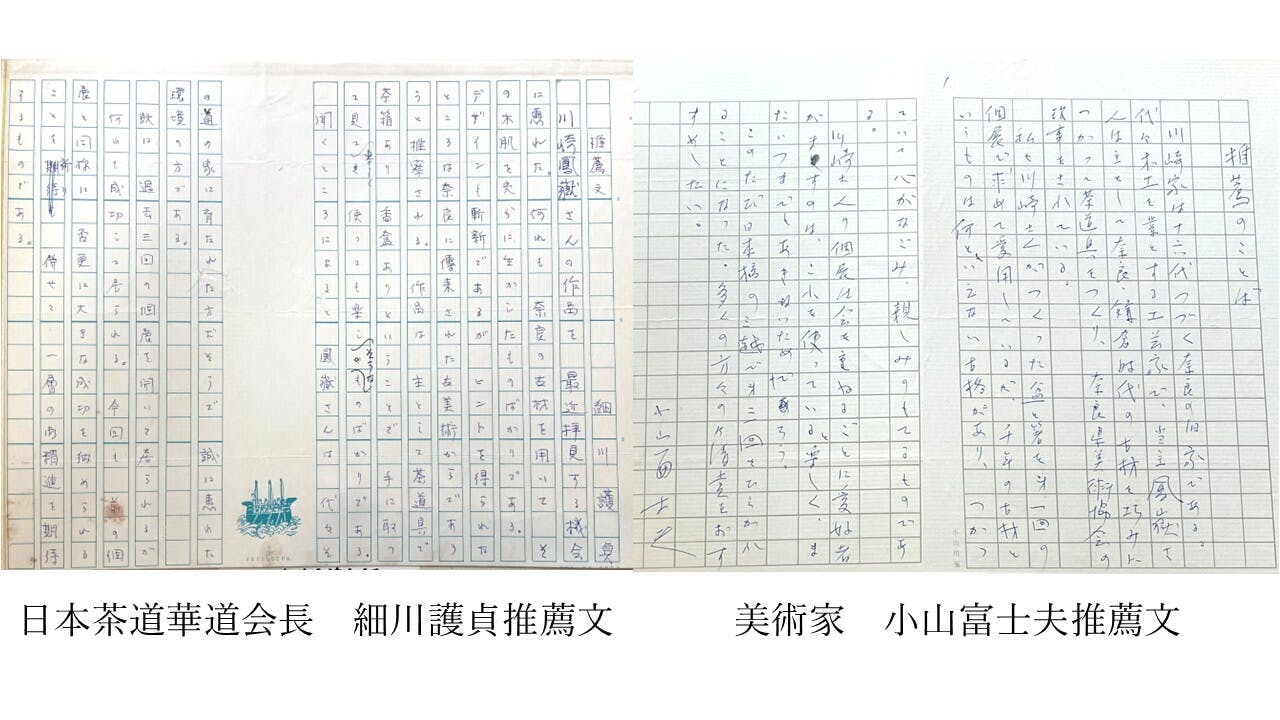 推薦文 細川護貞
川崎鳳嶽さんの作品を最近拝見する機会
に恵れた。何れも奈良の古材を用いてそ
の木肌を充分に生かしたものばかりである。
デザインも斬新であるがヒントを得られた
ところは奈良に傳来された古美術からであろ
うと推察される。作品は主として茶道具で
あり香盒ありということで手に取っ
て見ても使っても楽しそうなものばかりである。
聞くところによると鳳嶽さんは代々そ
の道の家に育たれた方だそうで誠に恵れた
環境の方である。
既に過去三回の個展を開いて居られるが
何れも成功して居られる。今回も前の個
展と同様に否更に大きな成功を納められる
ことを祈り併せて一層の御精進を期待
するものである。
推薦のことば
川崎家は十六代つづく奈良の旧家である。
代々木工を業とする工芸家で、当主鳳山嶽さ
人は主として奈良・鎌倉時代の古材を巧みに
つかって茶道具をつくり、奈良県美術協会の
理事をされている。
私も川崎さんがつくった盆と箸を第一回の
個展で求めて愛用しているが、千年の古材と
いうものは何といえない古格があり、つかっ
ていて心がなごみ、親しみのもてるものであ
る。
川崎さんの個展は会を重ねるごとに愛好者
がますのは、これを使っていると楽しく、ま
たいつまでもあきないためだろう。
このたび日本橋の三越で第三回をひらかれ
ることになった。多くの方々の御清をおす
すめしたい。
小山冨士夫
日本茶道華道会長 細川護貞推薦文
美術家 小山富士夫推薦文